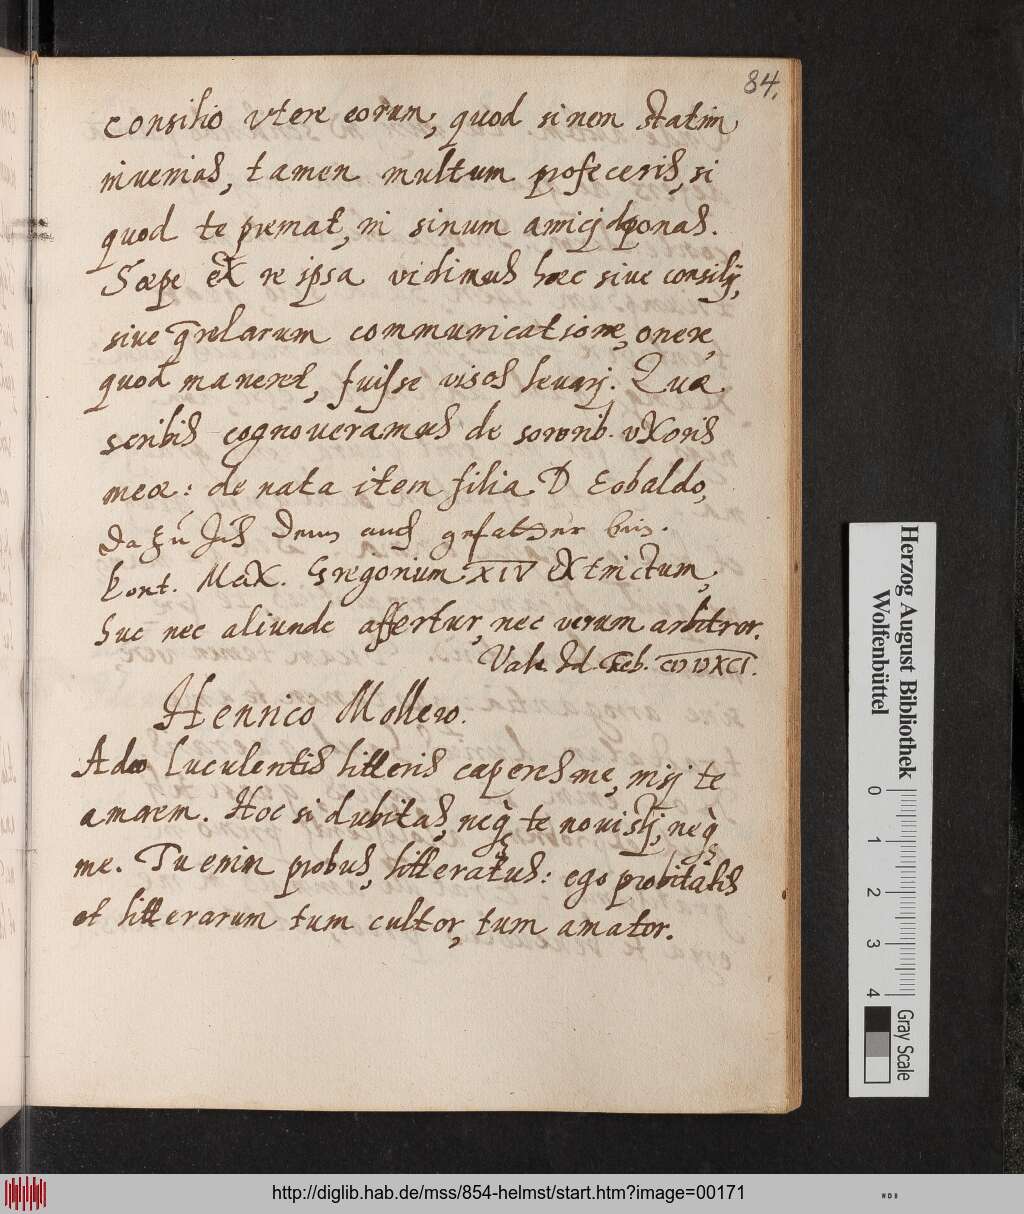 84.
consilio vtere eorum, quod si non statim
inuenias, tamen multum profeceris, si
quod te premat, in sinum amicj deponas.
Sæpe ex re ipsa vidimus hæc siue consilij,
siue q̄relarum communicatione, onere,
quod maneret, fuisse visos leuarj. Quæ
scribis cognoveramus de sororib. vxoris
meæ: de nata item filia D Eobaldo,
Da Zu Ich Denn auch gefatter bin.
Pont. Max. Gregorium XIV extinctum,
huc nec aliunde affertur, nec verum arbitror.
Vale Id. Feb. CIↃ IↃXCI.
Henrico Mollero.
Adeo luculentis litteris caperes me, nisj te
amarem. Hoc si dubitas, neq̀ te novistj, neq̀
me. Tu enim probus, litteratus: ego probitatis
et litterarum tum cultor, tum amator.
Herzog August Bibliothek
Wolfenbüttel
0 1 2 3 4
Gray Scale
http://diglib.hab.de/mss/854-helmst/start.htm?image=00171
WDB